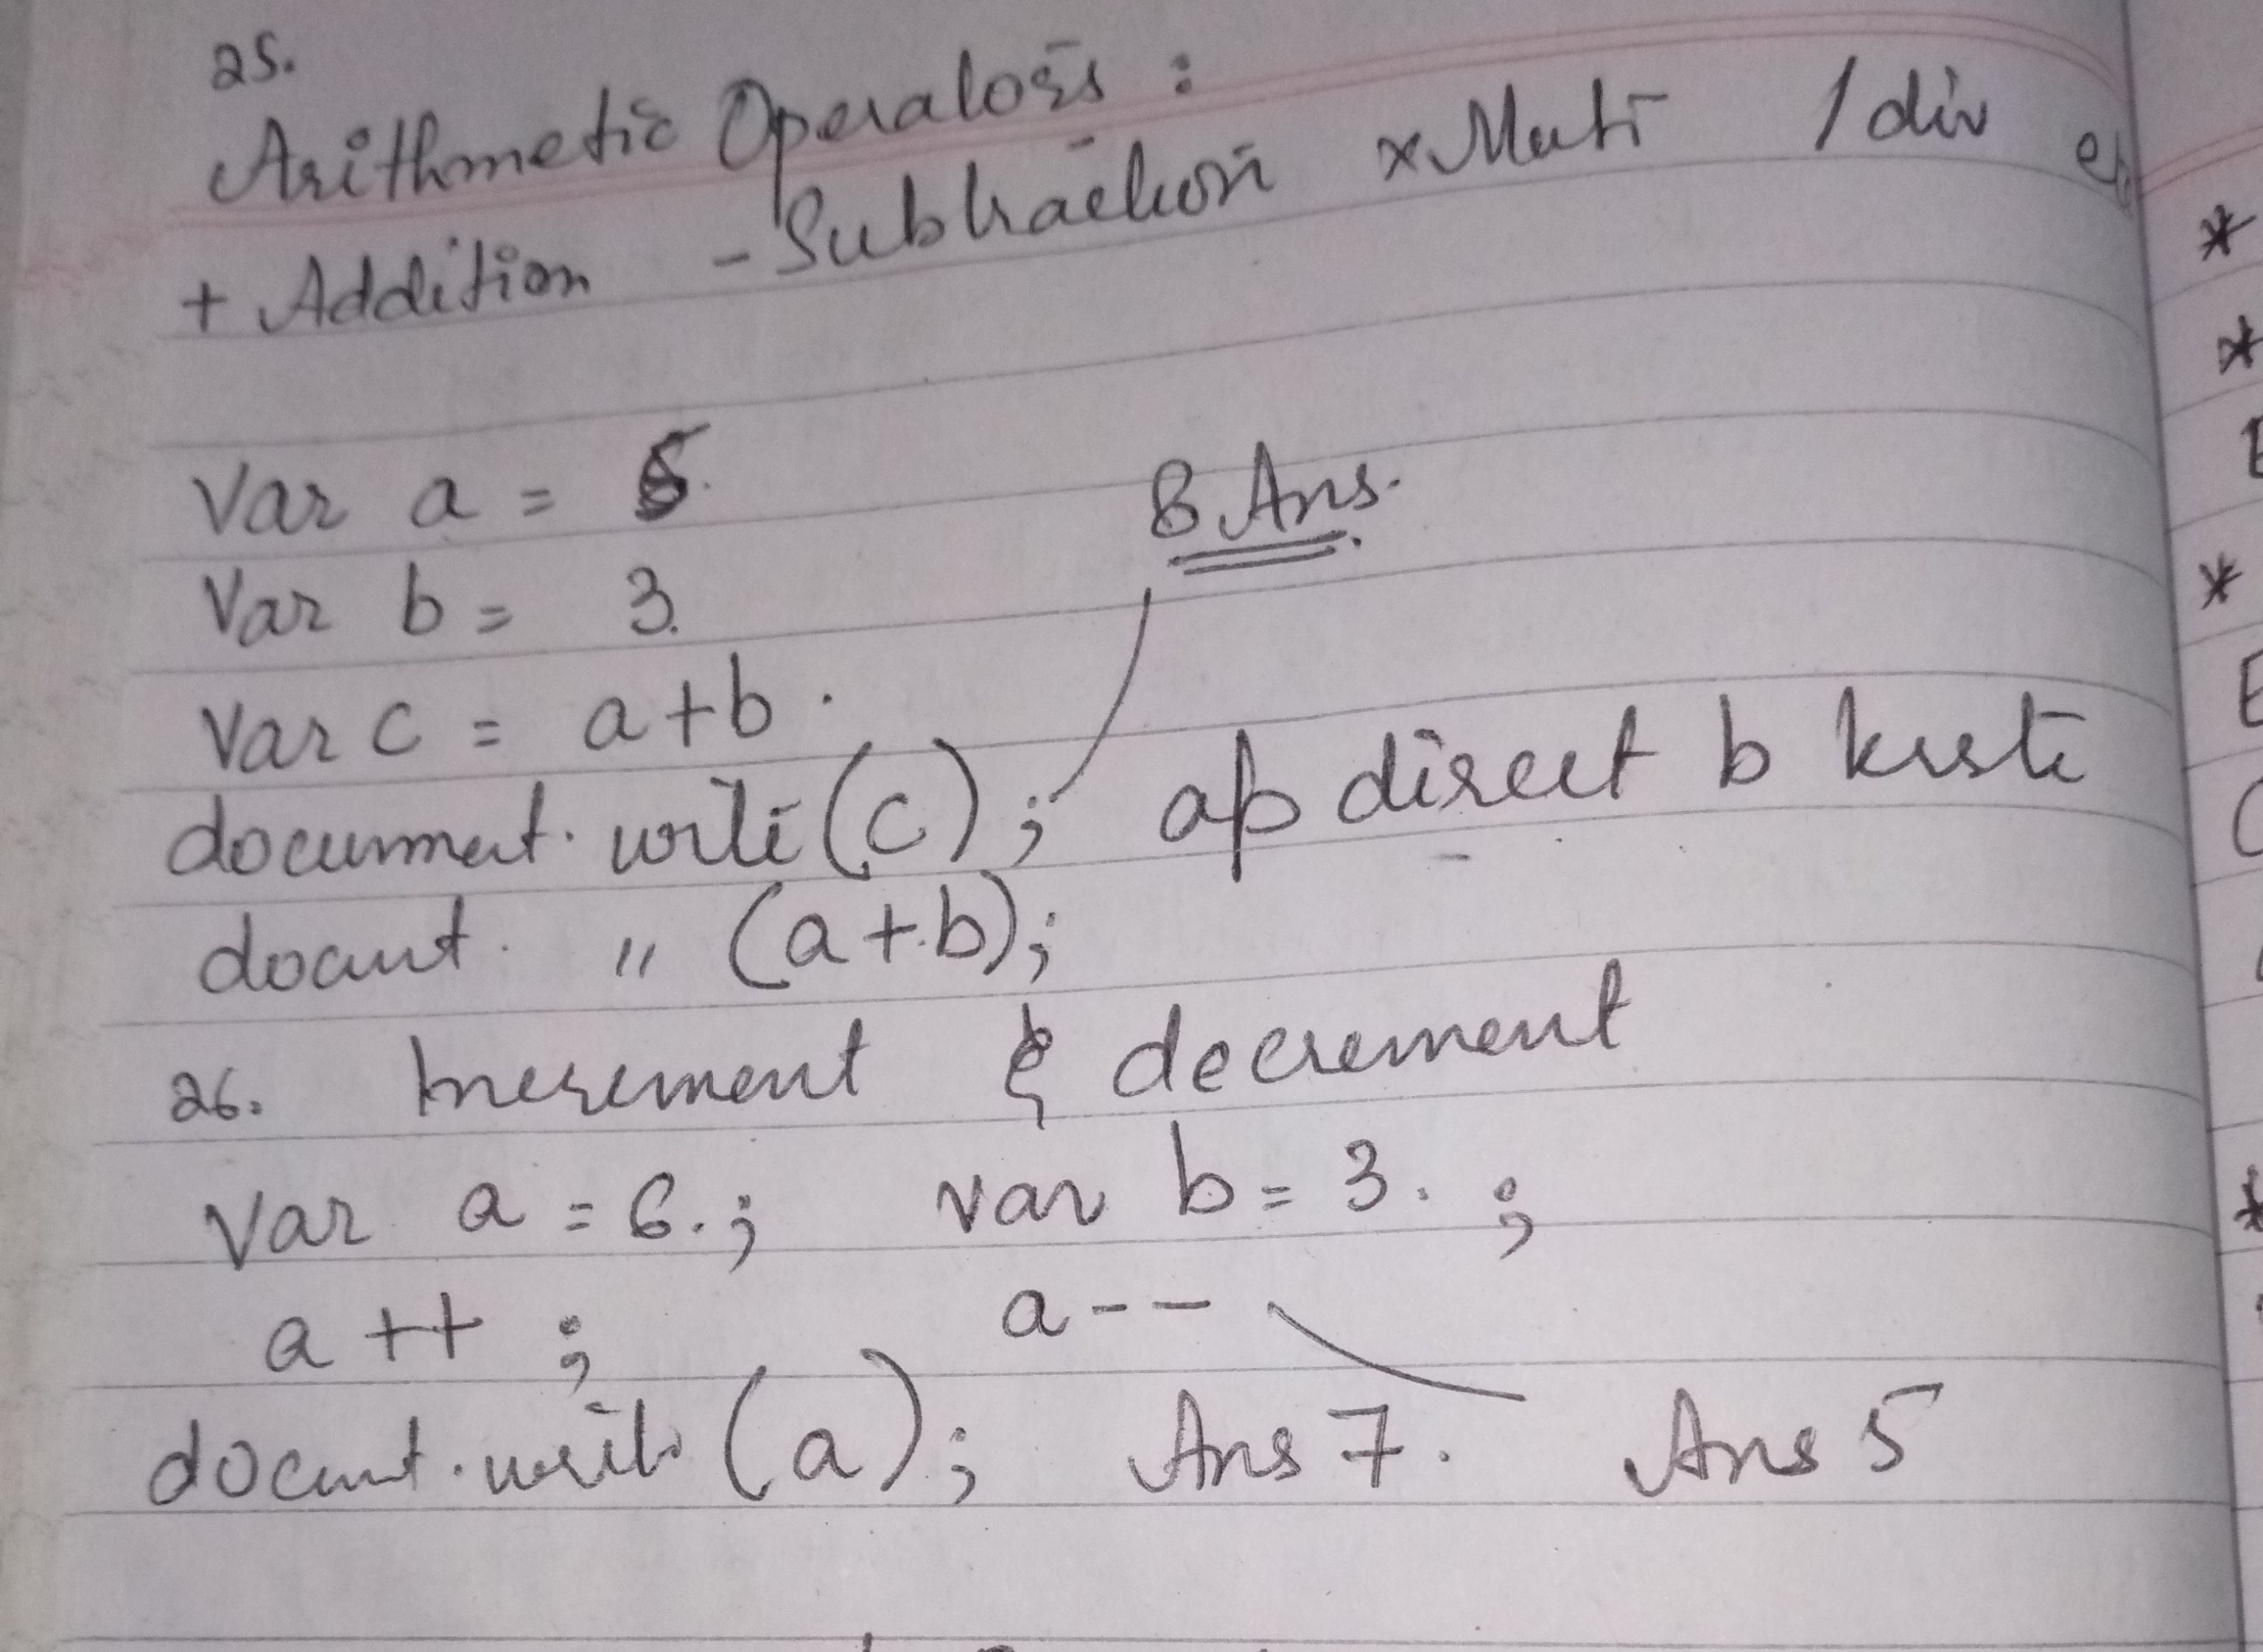 25.
Arithmetic Operators :
+ Addition - Subtraction × Multi / div
Var a = 5.
8 Ans.
Var b = 3.
Var c = a+b.
document. write (c) ; ap direct b
docunt. " (a+b);
26. Increment & decrement
Var a = 6. ; var b = 3. ;
a ++ ; a - -
docunt. write (a) ; Ans 7. Ans 5